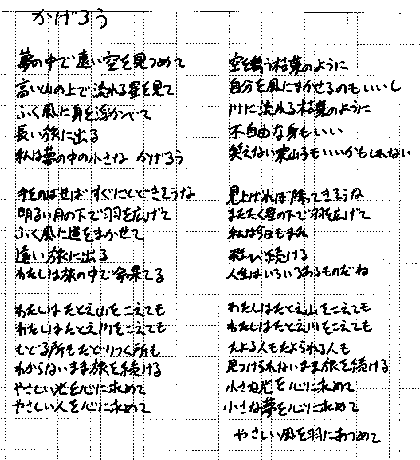 かげろう
夢の中で遠い空を見つめて
高い山の上で流れる雲を見て
ふく風に身を浮かべて
長い旅に出る
私は夢の中の小さな かげろう
手をのばせば すぐにとどきそうな
明るい月の下で羽を広げて
ふく風に道をまかせて
遠い旅に出る
わたしは旅の中で命果てる
わたしはたとえ山をこえても
わたしはたとえ川をこえても
もどる所もたどりつく所も
わからないまま旅を続ける
やさしい光を心に求めて
やさしい人を心に求めて
空を舞う枯葉のように
自分を風にまかせるのもいいし
川に流れる枯葉のように
不自由な身もいい
笑えない案山子もいいかもしれない
見上げれば降ってきそうな
またたく星の下で羽を広げて
私は今日もまた
飛び続ける
人生はいろいろあるものだね
わたしはたとえ山をこえても
わたしはたとえ川をこえても
たよる人もたよられる人も
見つけられないまま旅を続ける
小さな光を心に求めて
小さな夢を心に求めて
やさしい風を羽にあつめて